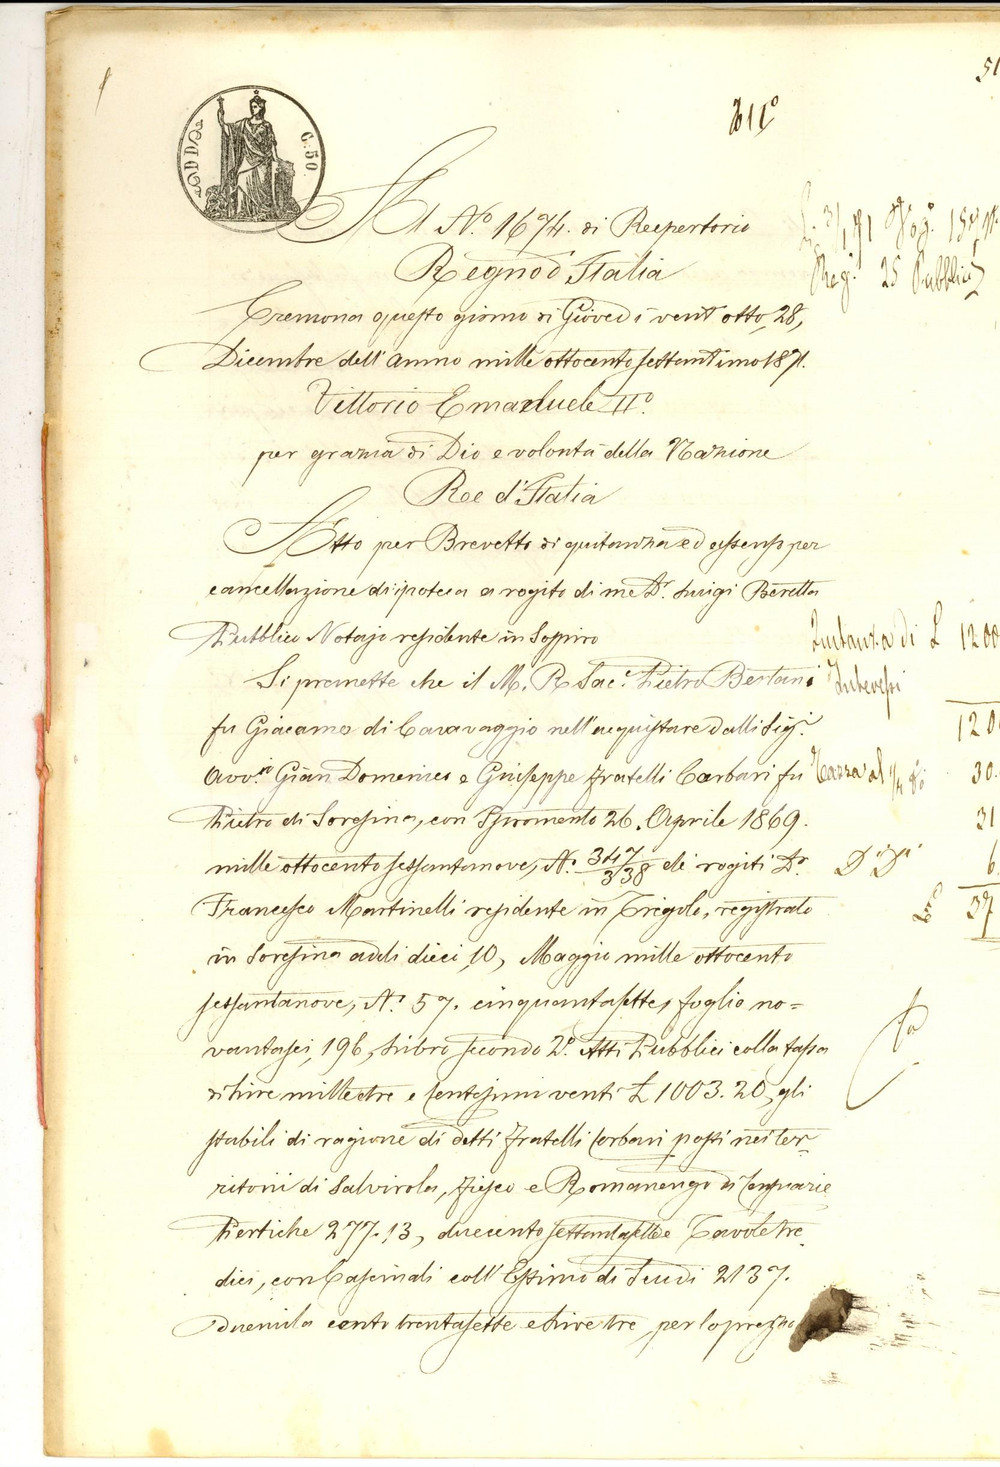 C. 50
Al N.° 1674. di Repertorio
Regno d'Italia
Cremona questo giorno di Giovedì vent'otto, 28,
Dicembre dell'anno mille ottocento settantuno 1871.
Vittorio Emanuele II°.
per grazia di Dio e volontà della Nazione
Ree d'Italia
Atto per Brevetto di quitanza ed assenso per
cancellazione di ipoteca a rogito di me D.r Luigi Beretta
Pubblico Notajo residente in Sospiro
Si premette che il M. R. Sac.e Pietro Bertani
fu Giacomo di Caravaggio nell'acquistare dalli Sig.i
Avv.to Gian Domenico e Giuseppe fratelli Corbari fu
Pietro di Soresina, con Istromento 26. Aprile 1869.
mille ottocento sessantanove, N.° 347/338 de' rogiti D.r
Francesco Martinelli residente in Trigolo, registrato
in Soresina addi dieci, 10, Maggio mille ottocento
sessantanove, N.° 57. cinquantasette, foglio no=
vantasei, 196, Libro secondo 2.° Atti Pubblici colla tassa
di Lire mille tre e Centesimi venti £ 1003.20, gli
stabili di ragione di detti fratelli Corbari posti nei ter-
ritorii di Salvirola, Fiesco e Romanengo di Censuarie
Pertiche 277.13, duecento settantasette e Tavole tre-
dici, con Cascinali coll'Estimo di Scudi 2137.
duemila cento trentasette e Lire tre, per lo prezzo
Reg. 25 Pubblici
Quitanza di £ 1200
Interessi
120
Tassa al
30.
31
6.
37